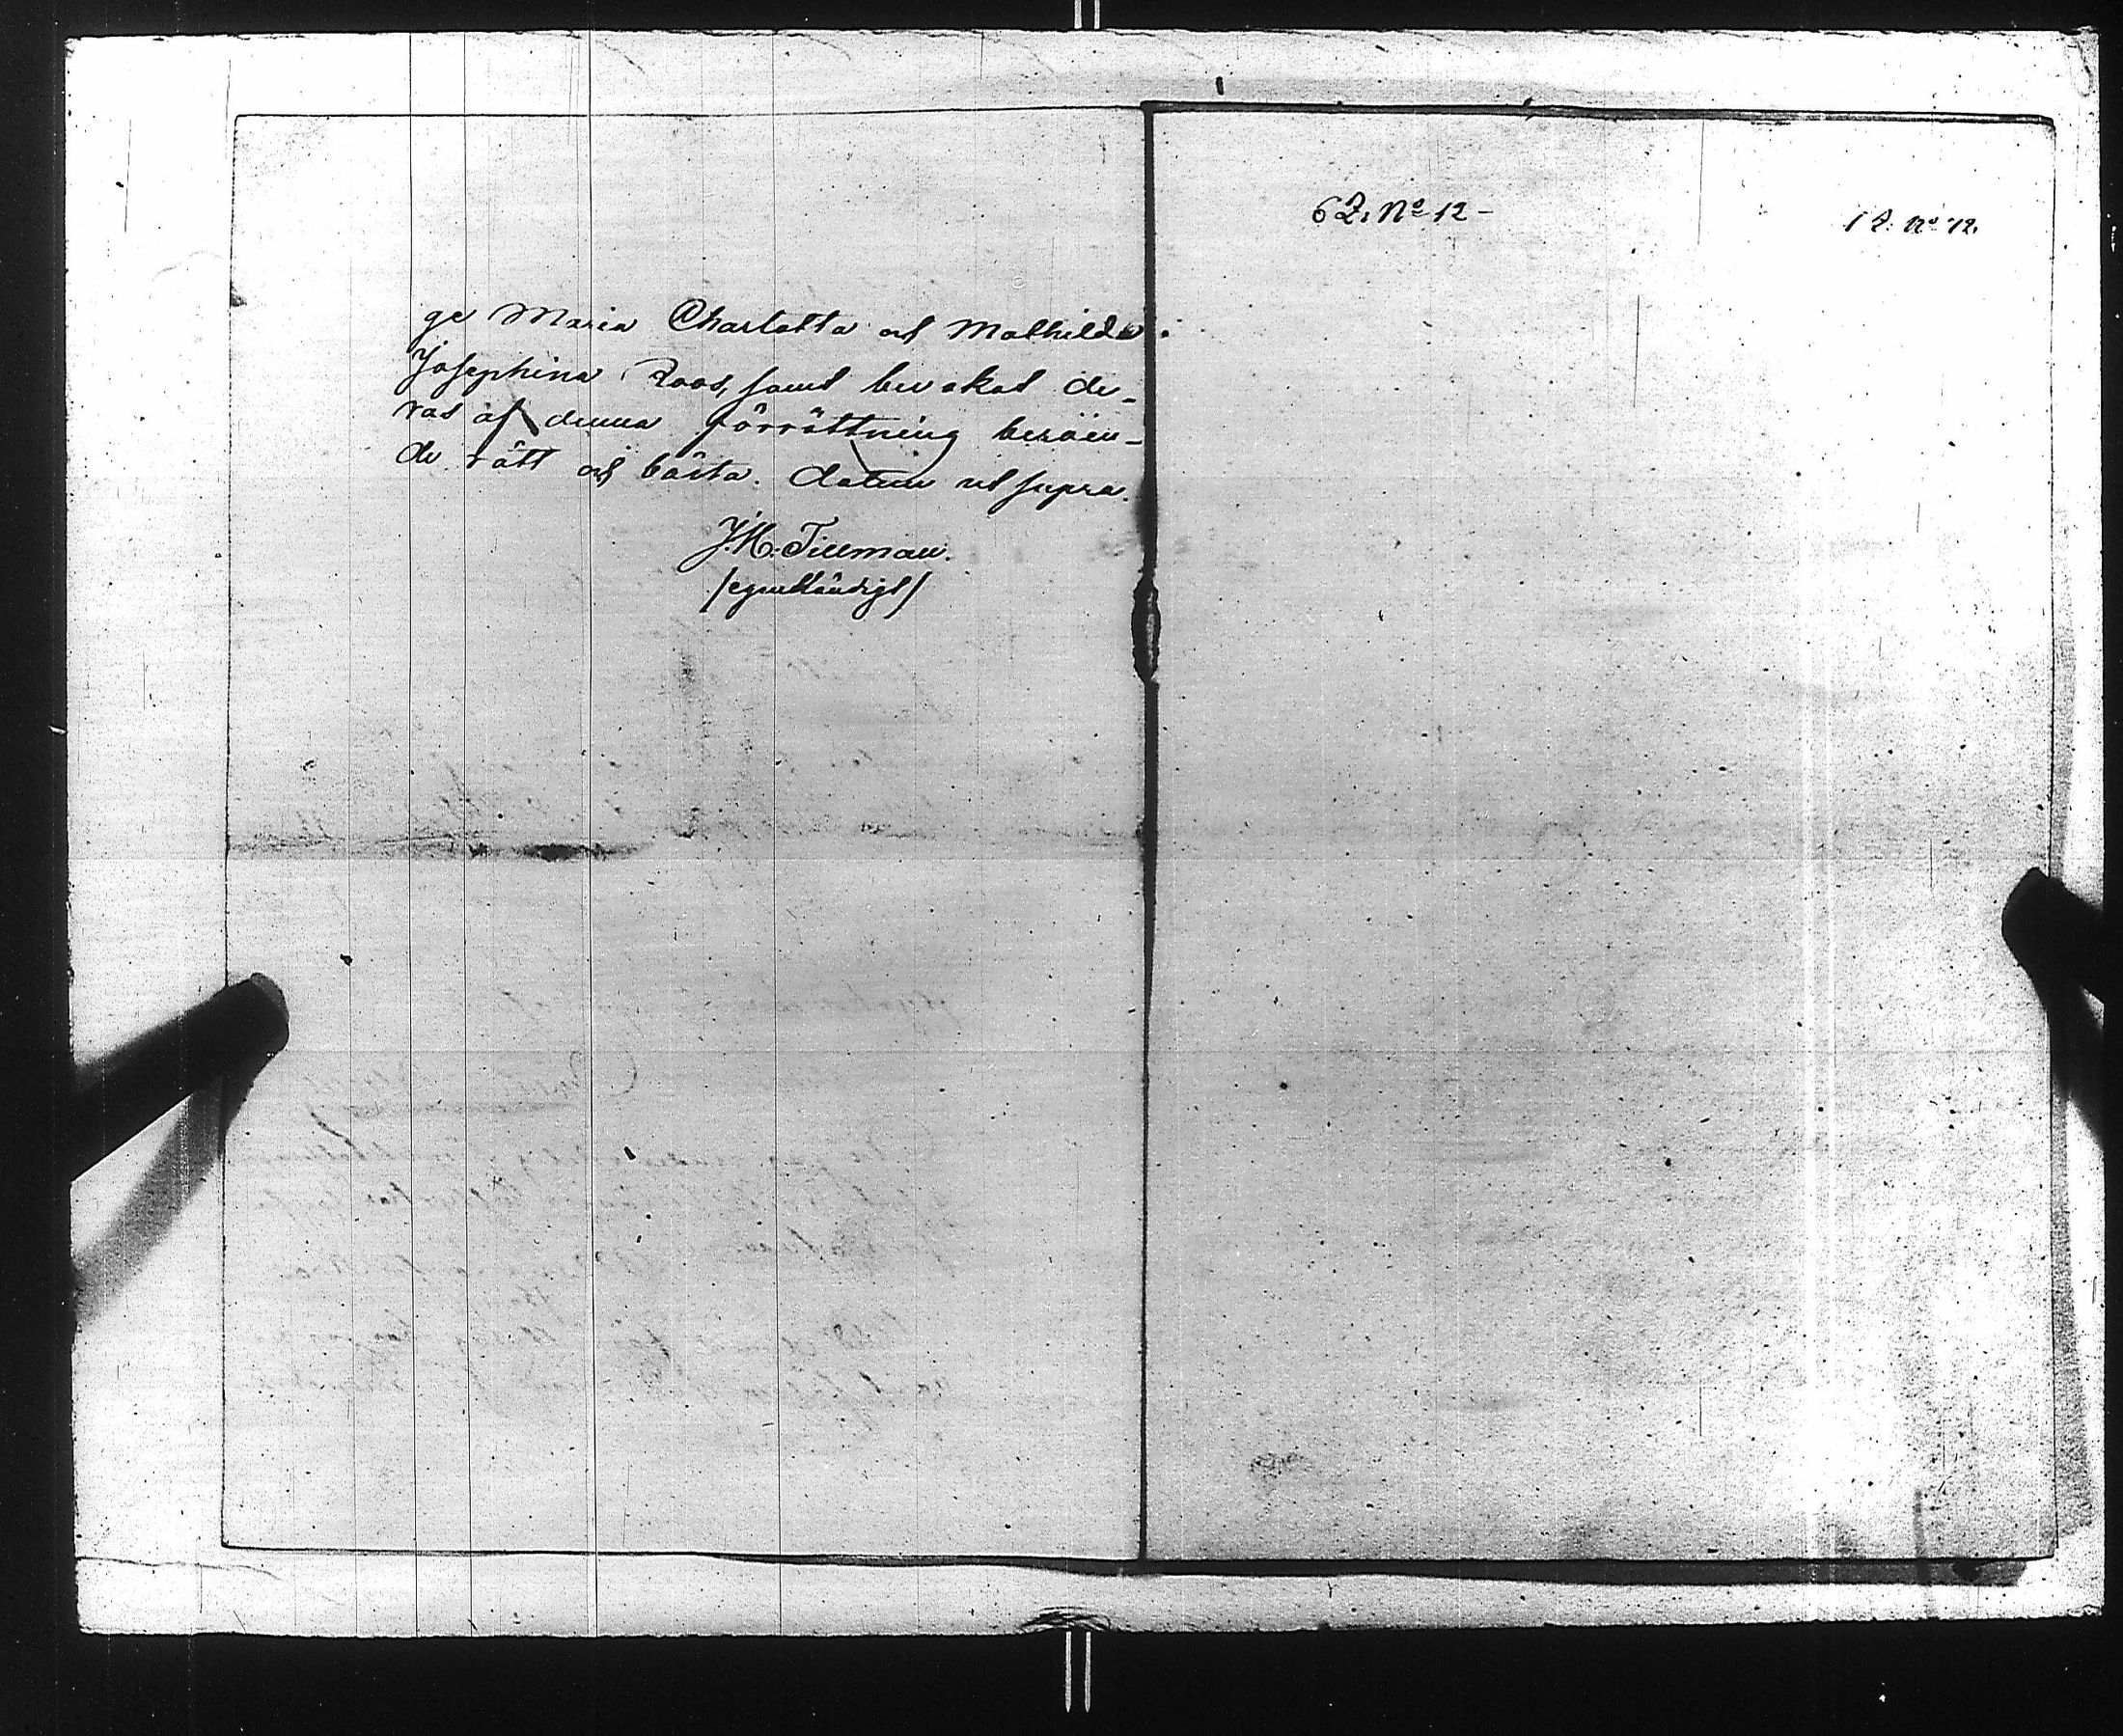 ge Maria Charlotta och Mathilda
Josephina Roos, samt bevakat de-
ras af denna förrättning beröen-
de rätt och bästa. Datum ut supra.
J. H. Tillman.
/egenhändigt/
62. No 12 -
12. No 12.